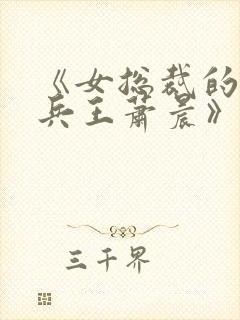 《女总裁的
兵王萧晨》
三千界